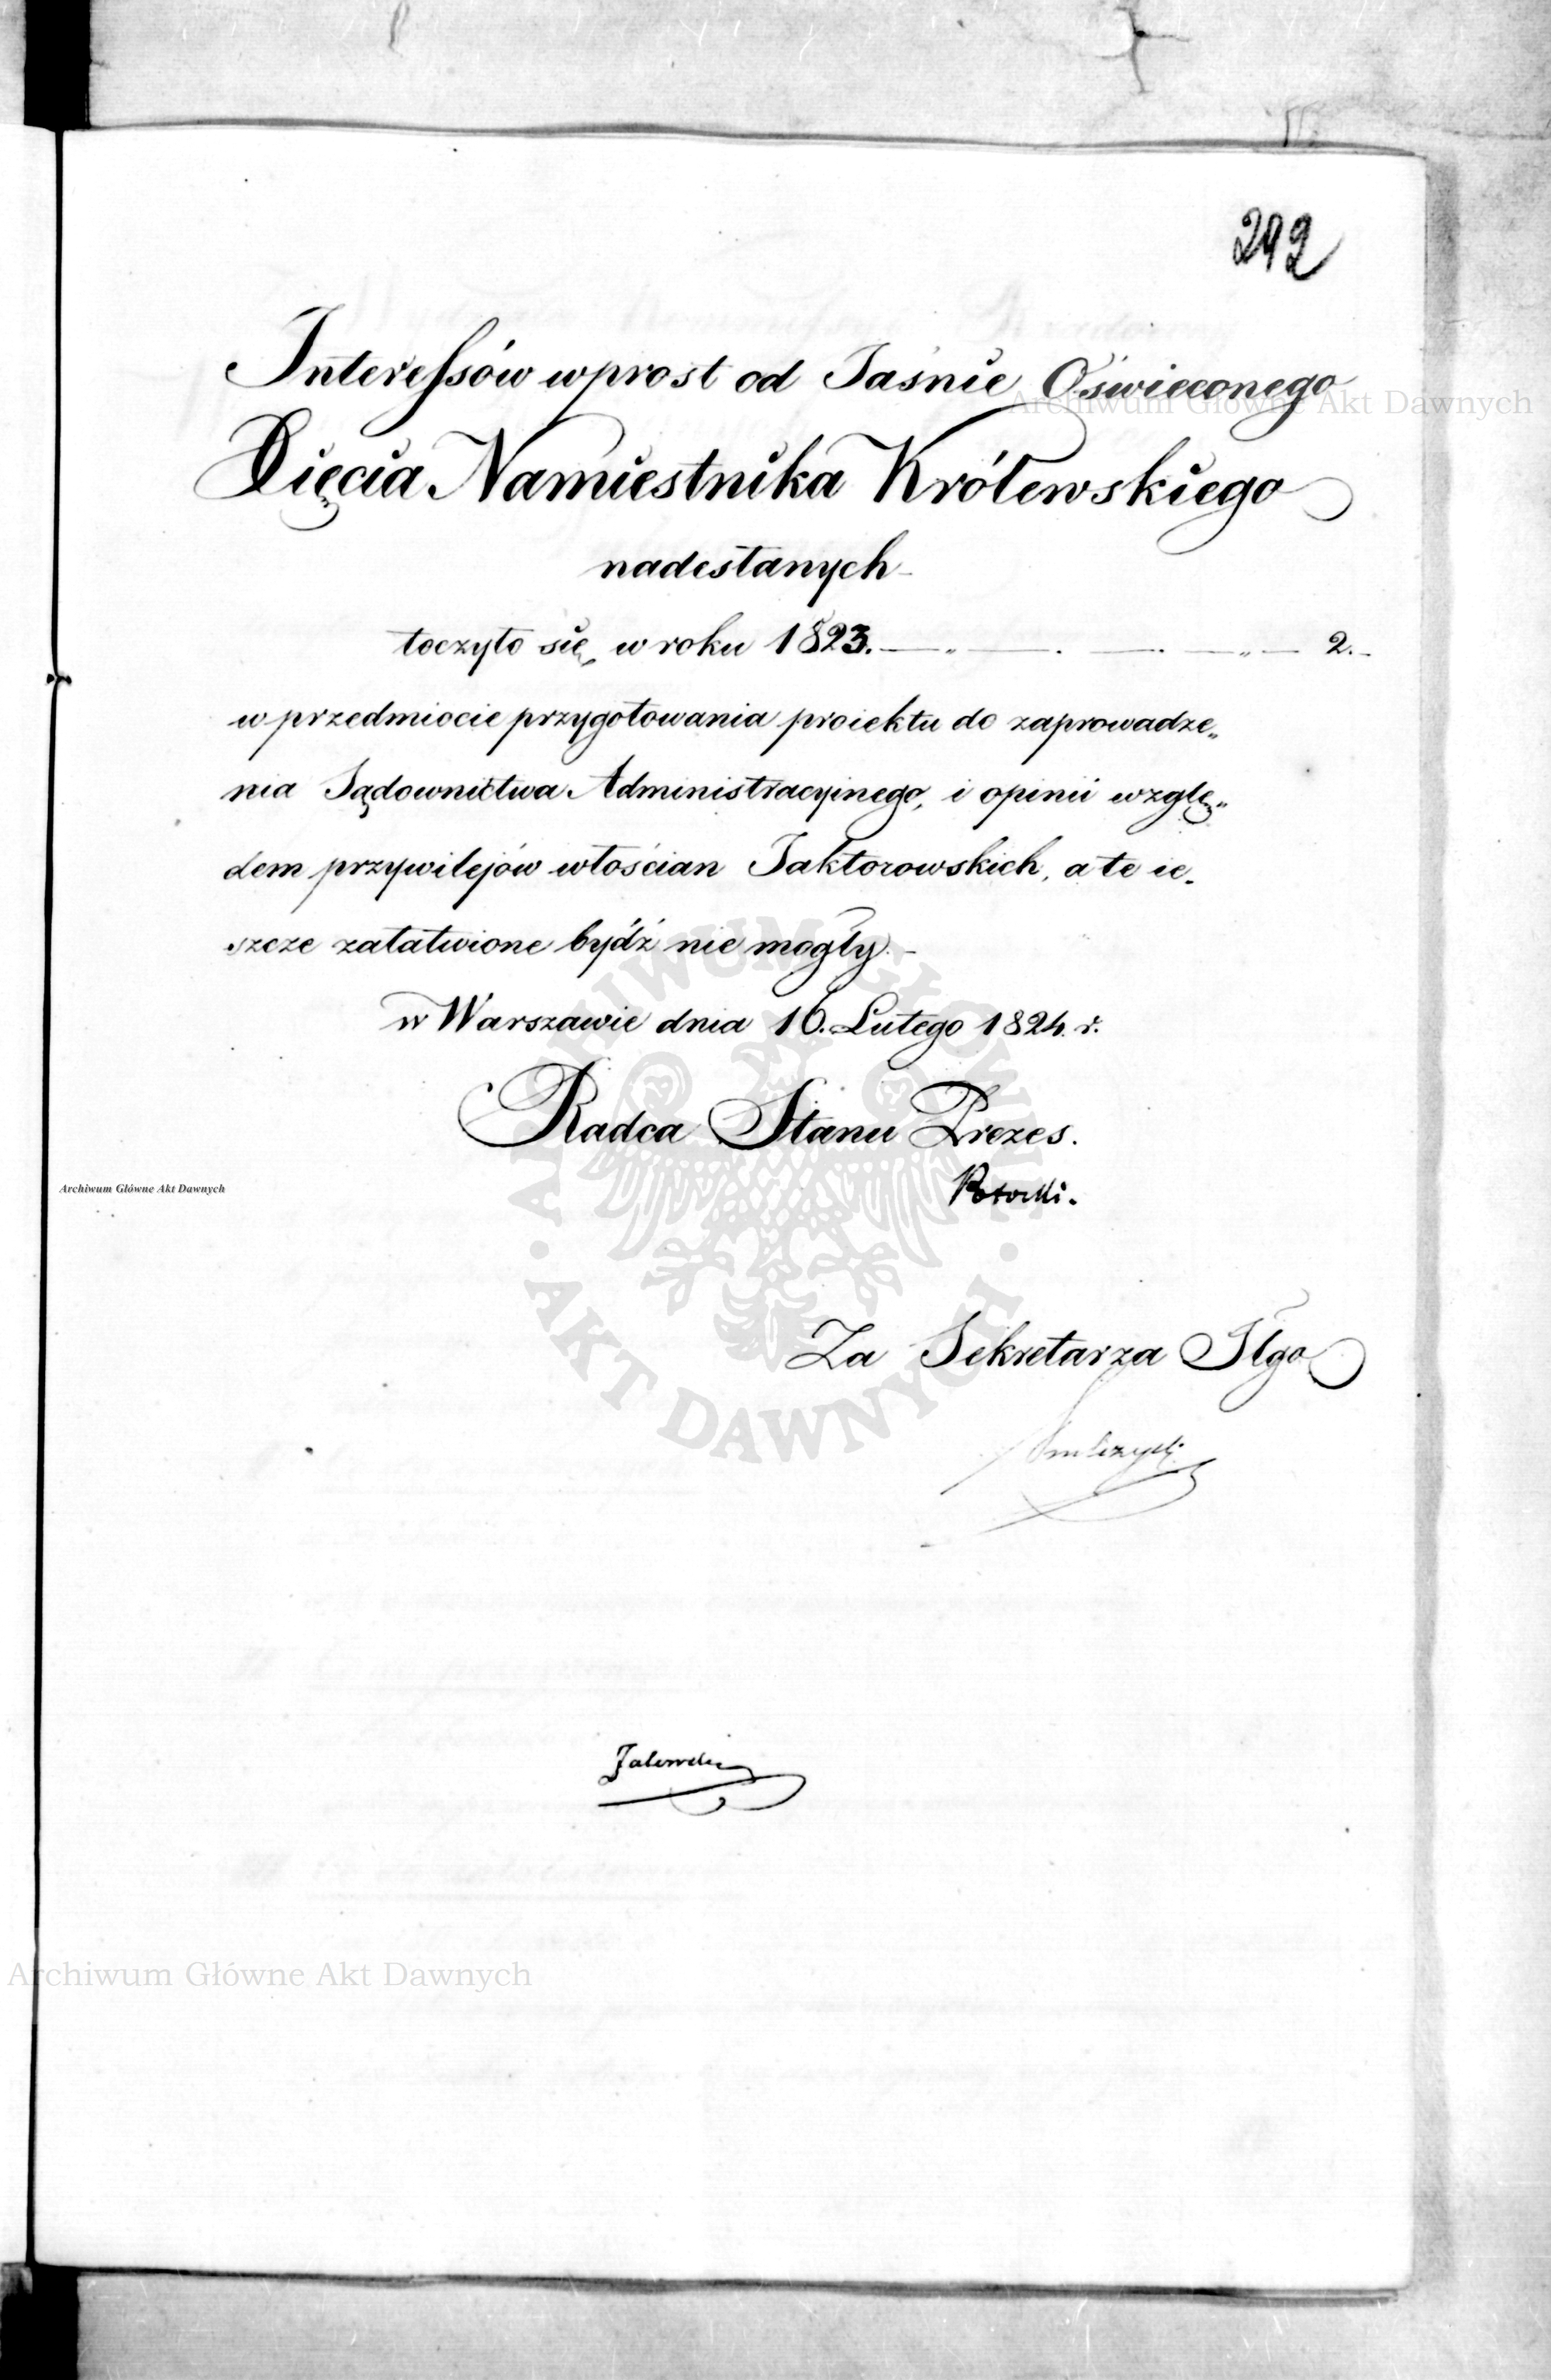 292
Interessów wprost od Jaśnie Oświeconego
Xięcia Namiestnika Królewskiego
nadesłanych
toczyło się w roku 1823. 2.
w przedmiocie przygotowania proiektu do zaprowadze„
nia Sądownictwa Administracyinego, i opinii wzglę„
dem przywilejów włościan Jaktorowskich, a te ie„
szcze załatwione bydź nie mogły.
w Warszawie dnia 16. Lutego 1824. r.
Radca Stanu Prezes.
Potocki.
Za Sekretarza Jlgo
Archiwum Główne Akt Dawnych
Archiwum Główne Akt Dawnych
Archiwum Główne Akt Dawnych
ARCHIWUM GŁÓWNE
AKT DAWNYCH